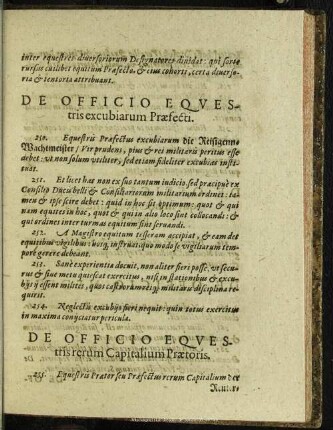 inter equestres diuersoriorum Designatores diuidat: qui
rursus cuilibet equitum Præfecto, & eius cohorti, certa diuerso-
ria & tentoria attribuant.
DE OFFICIO EQVES-
tris excubiarum Præfecti.
250. Equestris Præfectus excubiarum die Reisigenn
Wachtmeister / Vir prudens, pius & rei militaris peritus esse
debet: vt non solum vtiliter, sed etiam fideliter excubias insti-
tuat.
251. Et licet has non ex suo tantum iudicio sed præcipuè ex
Consilio Ducu belli & Consiliariorum militarium ordinet: ta-
men & ipse scire debet: quid in hoc sit optimum: quot & qui
nam equites in hoc, quot & qui in alio loco sint collocandi: &
qui ordines inter turmas equitum sint seruandi.
252. A Magistro equitum tesseram accipiat, & eam det
equitibus vigilibus: instruatque modo se vigiliarum tem-
pore gerere debeant.
253. Sanè experientia docuit, non aliter fieri posse, vt secu-
rus & sine metu quiescat exercitus, nisi in stationibus & excu-
bijs ij essent milites, quos castrorum militaris disciplina re-
quireret.
254. Neglectis excubijs fieri nequit: quin totus exercitus
in maxima conijciatur pericula.
DE OFFICIO EQVES-
tris rerum Capitalium Prætoris.
255. Equestris Prætor seu Præfectus rerum Capitalium der